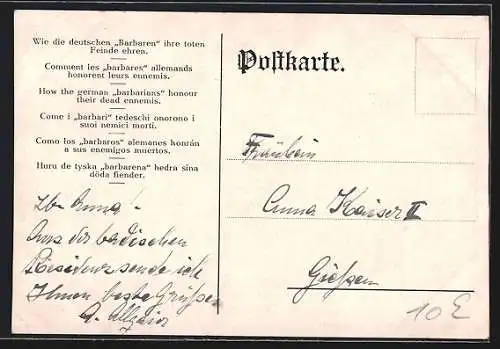 Wie die deutschen „Barbaren" ihre toten
Feinde ehren.
Comment les „barbares" allemands
honorent leurs ennemis.
How the german „barbarians" honour
their dead ennemis.
Come i „barbari" tedeschi onorono i
suoi nemici morti.
Como los „barbaros" alemanes honrán
a sus enemigos muertos.
Huru de tyska „barbarena" hedra sina
döda fiender.
Lb. Anna!
Aus der badischen
Residenz sende ich
Ihnen beste Grüßen
A. Allgaier
Postkarte.
Fräulein
Anna Kaiser II
Gießen
10 E